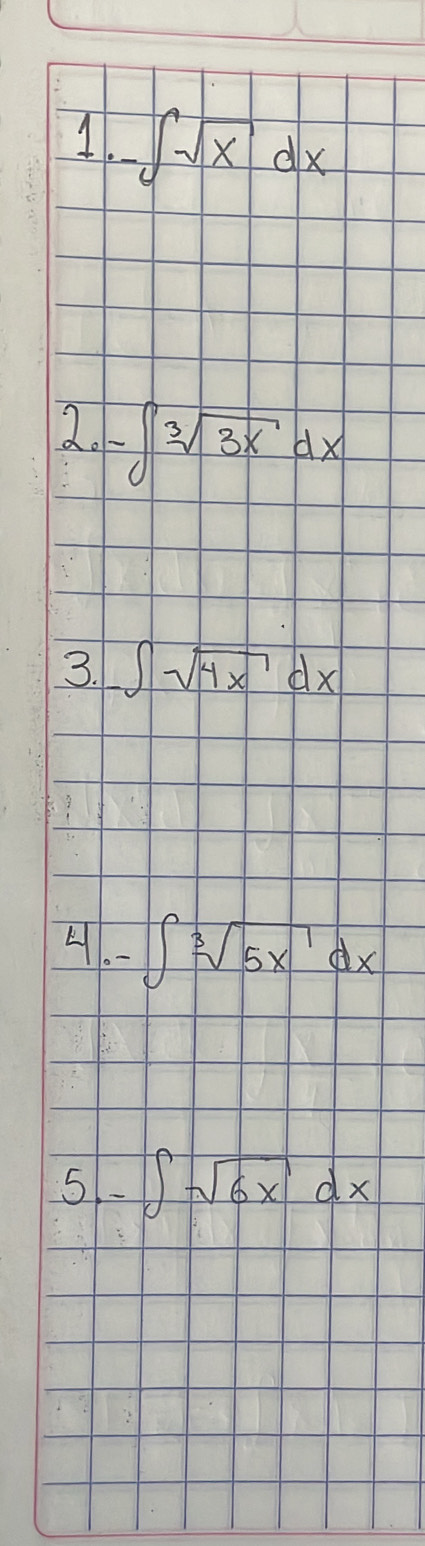 1.- ∫√x dx
2.- ∫∛3x dx
3.- ∫√4x dx
4.- ∫∛5x dx
5.- ∫√6x dx